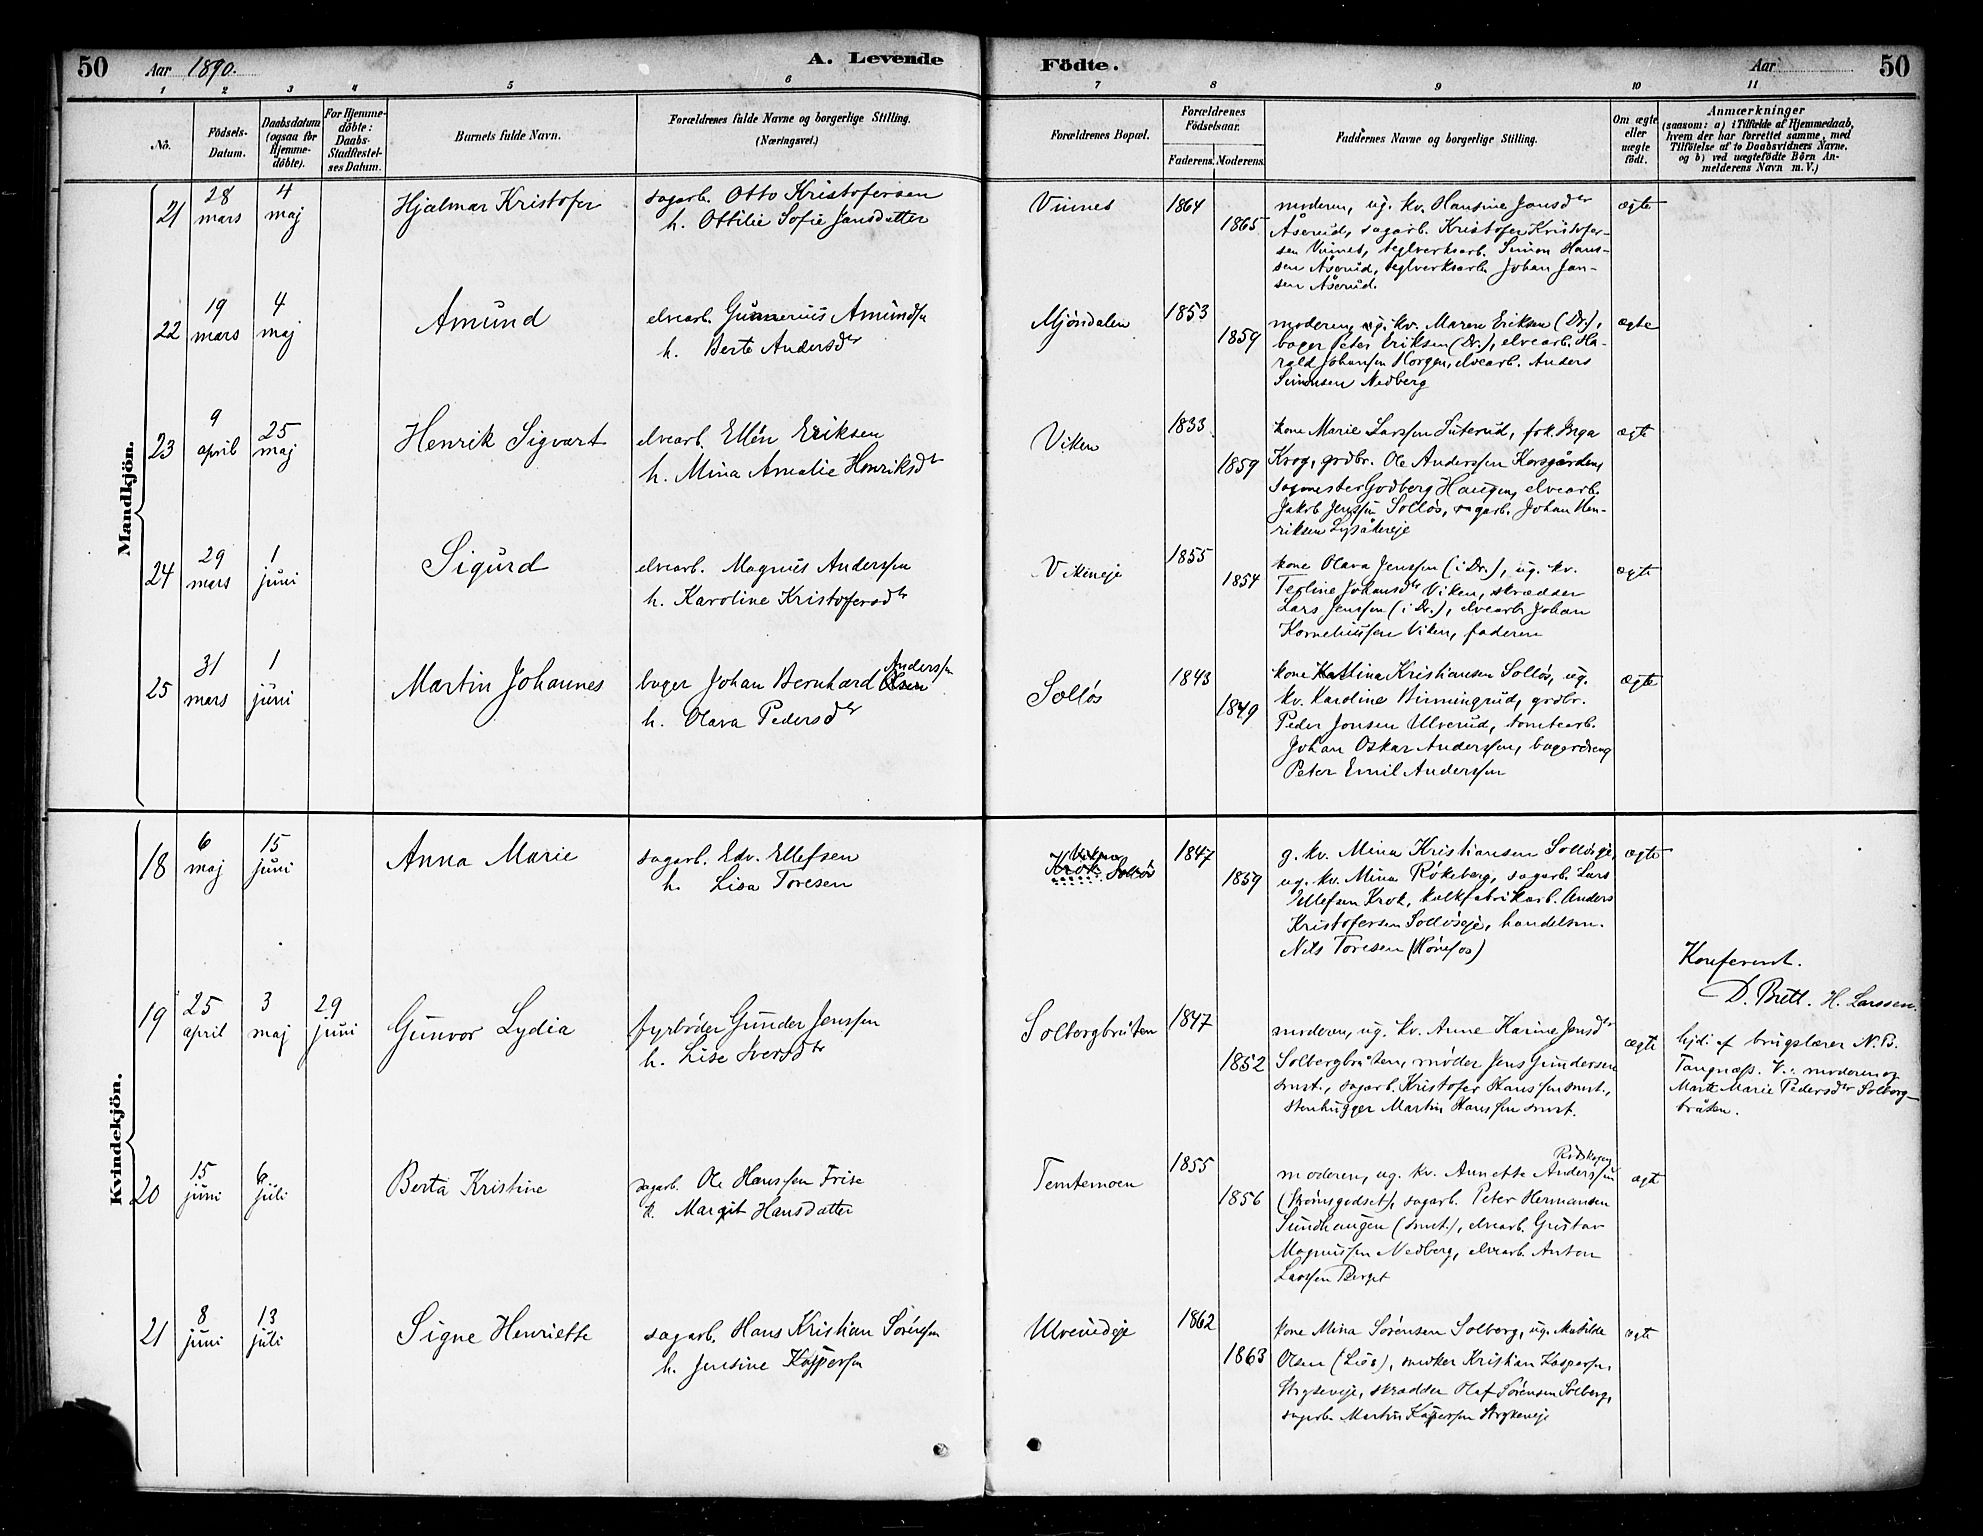 50 Aar 1890. A. Levende Födte. Aar 50
1 2 3 4 5 6 7 8 9 10 11
No. Födsels-Datum. Daabsdatum (ogsaa for Hjemme-döbte). For Hjemme-döbte: Daabs-Stadfæstel-ses Datum. Barnets fulde Navn. Forældrenes fulde Navne og borgerlige Stilling. (Næringsvei.) Forældrenes Bopæl. Forældrenes Födselsaar. Faderens. Moderens. Faddernes Navne og borgerlige Stilling. Om ægte eller uægte födt. Anmærkninger (saasom: a) i Tilfælde af Hjemmedaab, hvem der har forrettet samme, med Tilföielse af to Daabsvidners Navne. og b) ved uægtefödte Börn An-melderens Navn m. V.)
Mandkjön.
21 28 mars 4 maj Hjalmar Kristofer
sagarb. Otto Kristofersen
h. Ottilie Sofie Jansdatter
Vinnes 1864 1865
moderen, ug. kv. Hansine Jansdtr
Åserud, sagarb. Kristofer Kristofer-
sen Vinnes, teglverksarb. Simon Hans-
sen Åserud, teglverksarb. Johan Jan-
sen Åserud.
ægte
22 19 mars 4 maj Amund
elvearb. Gunnerius Amundsn
h. Berte Andersdtr
Mjöndalen 1853 1859
moderen, ug. kv. Maren Eriksen (Dr.),
bager Peter Eriksen (Dr.), elvearb. Ha-
rald Johansen Horgen, elvearb. Anders
Simonsen Nedberg
ægte
23 9 april 25 maj Henrik Sigvart
elvearb. Ellén Eriksen
h. Mina Amalie Henriksdtr
Viken 1833 1859
kone Marie Larssen Suterud, frk. Inga
Krog, grdbr. Ole Anderssen Korsgården,
sagmester Godberg Haugen, elvearb.
Jakob Jenssen Solløs, sagarb. Johan Hen-
riksen Lysåkereje
ægte
24 29 mars 1 juni Sigurd
elvearb. Magnus Anderssen
h. Karoline Kristofersdtr
Vikeneje 1855 1854
kone Olava Jenssen (i Dr.), ug. kv.
Teoline Johansdtr Viken, skrædder
Lars Jenssen (i Dr.), elvearb. Johan
Korneliussen Viken, faderen
ægte
25 31 mars 1 juni Martin Johannes
bager Johan Bernhard Olsen Anderssn
h. Olava Pedersdtr
Solløs 1843 1849
kone Kathina Kristiansen Solløs, ug.
kv. Karoline Binningrud, grdbr.
Peder Jonsen Ulverud, tomtearb.
Johan Oskar Anderssen, bagerdreng
Peter Emil Anderssen
ægte
Kvindekjön.
18 6 maj 15 juni Anna Marie
sagarb. Edv. Ellefsen
h. Lisa Toresen
Krok Solløs 1847 1859
g. kv. Mina Kristiansen Solløseje,
ug. kv. Mina Røkeberg, sagarb. Lars
Ellefsen Krok, kalkfabrikarb. Anders
Kristofersen Solløseje, handelsm.
Nils Toresen (Hønefos)
ægte
Konferert.
D. Brell. H. Larssen.
19 25 april 3 maj 29 juni Gunvor Lydia
fyrbøder Gunder Jenssen
h. Lise Iversdtr
Solbergbråten 1847 1852
moderen, ug. kv. Anne Karine Jensdtr
Solbergbråten, møder Jens Gundersen
smst., sagarb. Kristofer Hanssen smst.,
stenhugger Martin Hanssen smst.
ægte
hjd. af brugslærer N. B.
Tangnæss. V.: moderen og
Marte Marie Pedersdtr Solberg-
bråten.
20 15 juni 6 juli Berta Kristine
sagarb. Ole Hanssen Frise
h. Margit Hansdatter
Temtemoen 1855 1856
Rødskogen
moderen, ug. kv. Annette Anderssen
(Strömsgodset), sagarb. Peter Hermansen
Sundhaugen (smst.), elvearb. Gustav
Magnussen Nedberg, elvearb. Anton
Larssen Berget
ægte
21 8 juni 13 juli Signe Henriette
sagarb. Hans Kristian Sörensen
h. Jensine Kaspersen
Ulverudeje 1862 1863
kone Mina Sørensen Solberg, ug. Matilde
Olsen (Lies), snedker Kristian Kaspersen,
Strykeveje, skrædder Olaf Sørensen Solberg,
sagarb. Martin Kaspersen Strykenveje
ægte